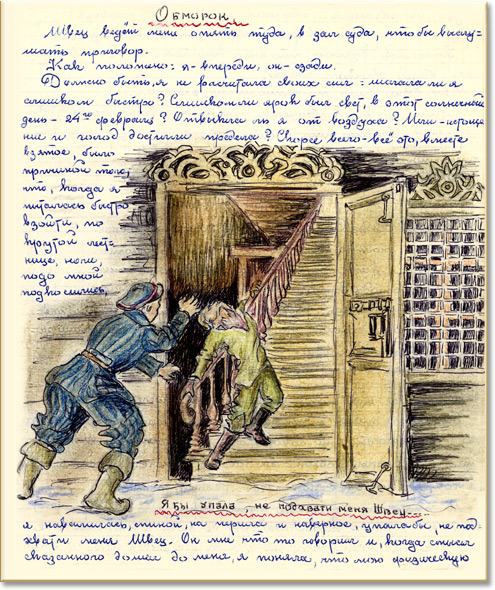 Обморок
Швец ведёт меня опять туда, в зал суда, чтобы выслу-
шать приговор.
Как положено: я- впереди, он- сзади.
Должно быть, я не расчитала своих сил: шагала ли я
слишком быстро? Слишком ли ярок был свет, в этот солнечный
день - 24го февраля? Отвыкла ли я от воздуха? Или - истоще-
ние и голод достигли предела? Скорее всего - всё это, вместе
взятое было
причиной того,
что, когда я
пыталась быстро
взойти, по
крутой лест-
нице, ноги,
подо мной
подкосились,
Я бы упала, не подхвати меня Швец...
я навалилась, спиной, на перила и наверное, упала бы, не под-
хвати меня Швец. Он мне что то говорил и, когда смысл
сказанного дошёл до меня, я поняла, что мою физическую